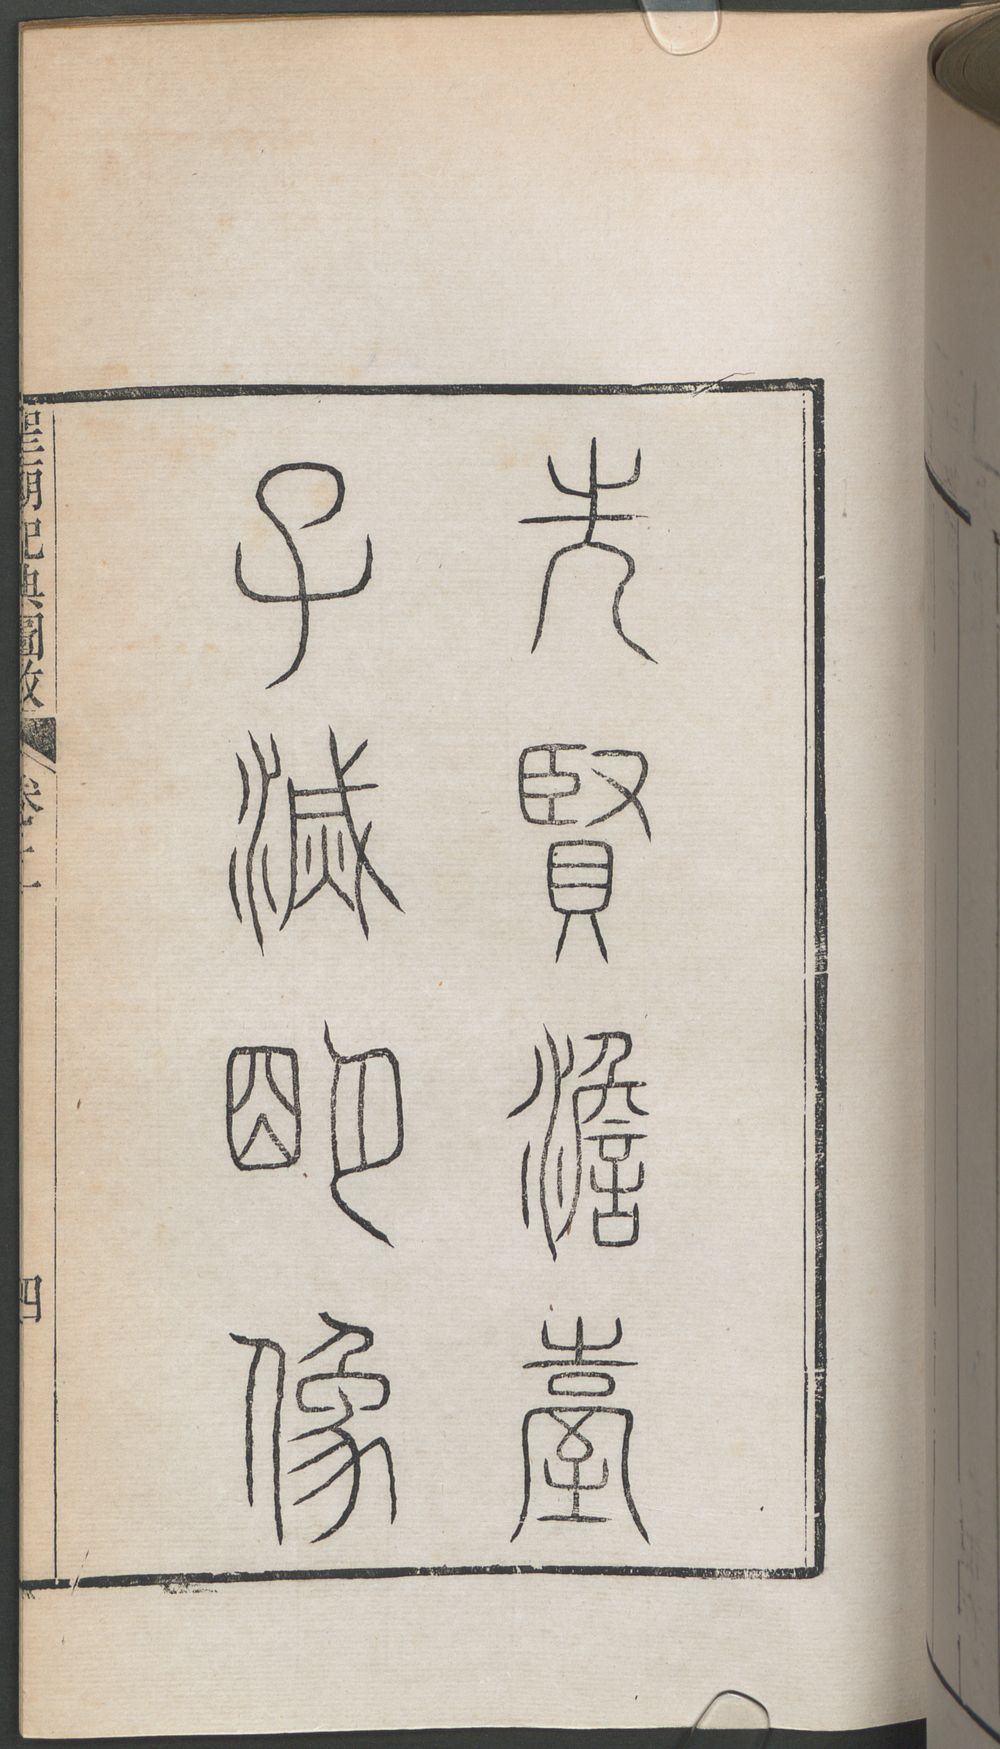 先賢澹臺
子滅明像
聖廟祀典圖攷
卷二
四